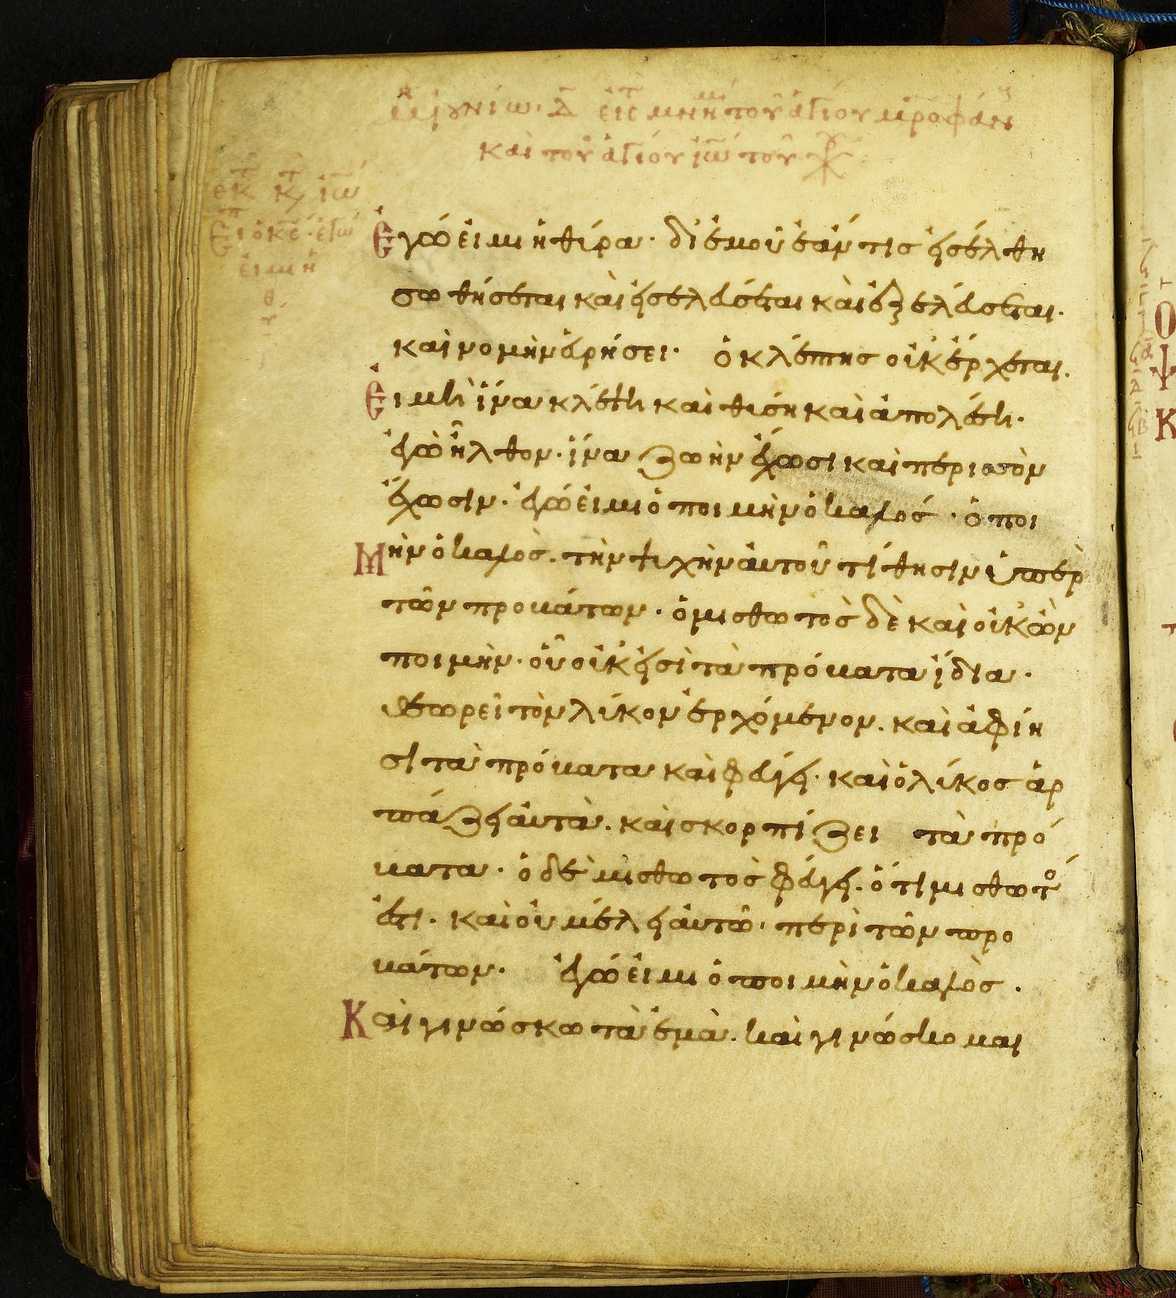 μ ιουνίω. Δ εις μνη του αγίου μροφάν
και του αγίου ιω του
εκ τ κτ ιω
Ειπ ο κς. εγώ
ειμι η
θ
Ἐγώ εἰμι ἡ θίρα. δι εμου εάν τισ εισέλθη
σωθήσεται και εισελεύσεται και εξελεύσεται.
και νομην ευρήσει. ὁ κλέπτης οικ έρχεται.
Ει μὴ ἵνα κλέψη και θισή και απολέση.
εγὼ ἦλθον. ἵνα ζωὴν έχωσι και περισσὸν
έχωσιν. εγώ ειμι ὁ ποιμὴν ὁ καλός. ὁ ποι
Μὴν ὁ καλὸς. τὴν ψιχὴν αυτοῦ τίθησιν ὑπερ
τῶν προβάτων. ὁ μισθωτος δὲ και οικ ὢν
ποιμὴν. οὗ οικ εισὶ τὰ πρόβατα ίδια.
θεωρεῖ τὸν λίκον ερχόμενον. και αφίη
σι τὰ πρόβατα και φεύγει. και ὁ λίκος αρ
πάζει αυτὰ. και σκορπίζει τὰ πρό
βατα. ὁ δὲ μισθωτὸς φεύγει. ὅτι μισθωτό
εστι. και ου μέλει αυτῶ. περὶ τῶν προ
βάτων. εγώ ειμι ὁ ποιμὴν ὁ καλὸς.
Και γινώσκω τὰ εμὰ. και γινώσκομαι